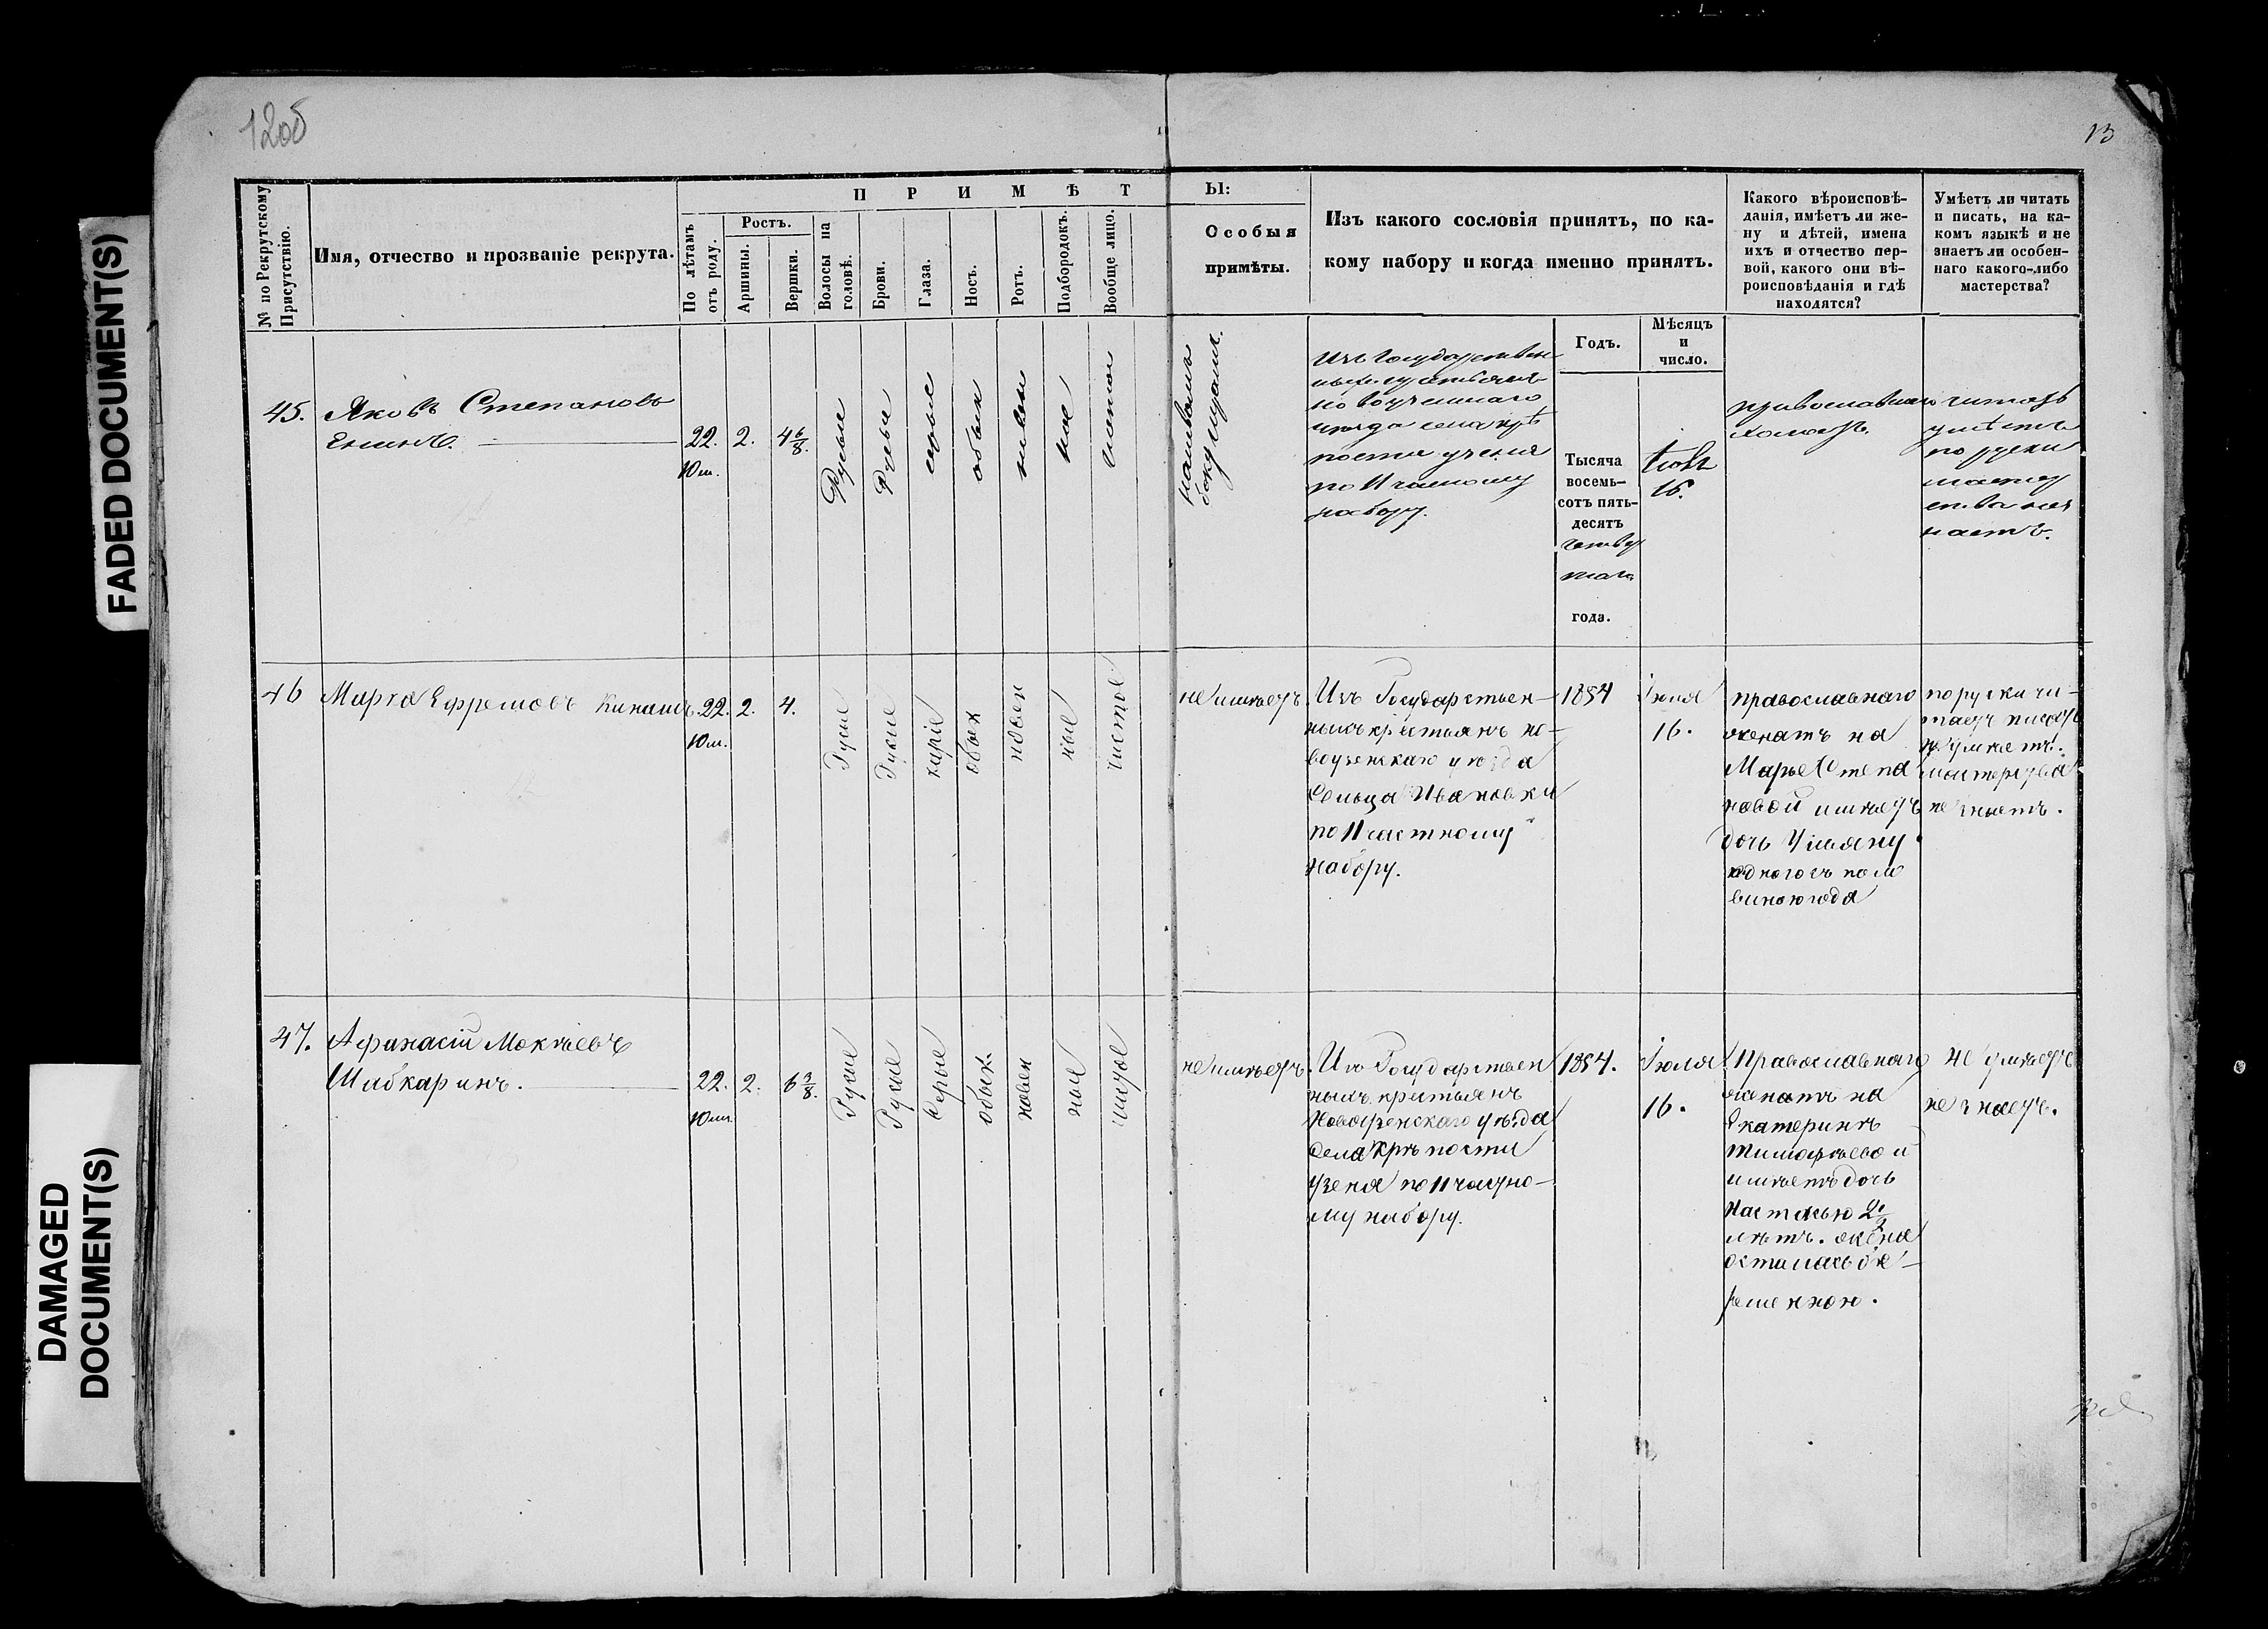 12об
13
FADED DOCUMENT(S)
DAMAGED
DOCUMENT(S)
№ по Рекрутскому
Присутствію.
Имя, отчество и прозваніе рекрута.
П Р И М Ѣ Т
Ы:
По лѣтамъ
отъ роду.
Ростъ.
Аршины.
Вершки.
Волосы на
головѣ.
Брови.
Глаза.
Носъ.
Ротъ.
Подбородокъ.
Вообще лицо.
Особыя
примѣты.
Изъ какого сословія принятъ, по ка-
кому набору и когда именно принятъ.
Какого вѣроисповѣ-
данія, имѣетъ ли же-
ну и дѣтей, имена
ихъ и отчество пер-
вой, какого они вѣ-
роисповѣданія и гдѣ
находятся?
Умѣетъ ли читать
и писать, на ка-
комъ языкѣ и не
знаетъ ли особен-
наго какого-либо
мастерства?
Годъ.
Мѣсяцъ
и
число.
45.
Яковъ Степановъ
22.
10 м.
2.
4 6/8.
Русые
Русые
сѣрые
обык
новен
ное
чистое
Изъ Государствен
ныхъ крестьянъ
Новоузенскаго
уѣзда села крѣ
пости узеня
по 11 частному
набору.
Тысяча
восемь-
сотъ пять-
десятъ
четвер
таго
года.
Іюля
16.
православнаго
холостъ.
читать
умѣетъ
по руски
мастер
ства не з
наетъ.
46
Марка Ефремовъ
22.
10 м.
2.
4.
Русые
Русые
каріе
обык
новен
ное
чистое
не имѣетъ.
Изъ Государствен-
ныхъ крестьянъ но-
воузенскаго уѣзда
Сельца Ивановки
по 11 частному
набору.
1854
Іюля
16.
православнаго
женатъ на
Марье Степа
новой имѣетъ
дочь Ульяну
одного съ поло
виною года
по руски чи-
таетъ писать
не умѣетъ.
мастерства
не знаетъ.
47.
Афанасій Мокѣевъ
Шибкаринъ.
22.
10 м.
2.
6 3/8.
Русые
Русые
Серые
обык.
новен
ное
чистое
не имѣетъ.
Изъ Государствен
ныхъ крестьянъ
Новоузенскаго уѣзда
Села Крѣпости
Узеня по 11 частно-
му набору.
1854.
Іюля
16.
Православнаго
женатъ на
Екатеринѣ
Тимофѣевой
имѣетъ дочь
Настасью 2 1/2
лѣтъ. жена
осталась бе-
ременною.
не умѣетъ
не знаетъ.